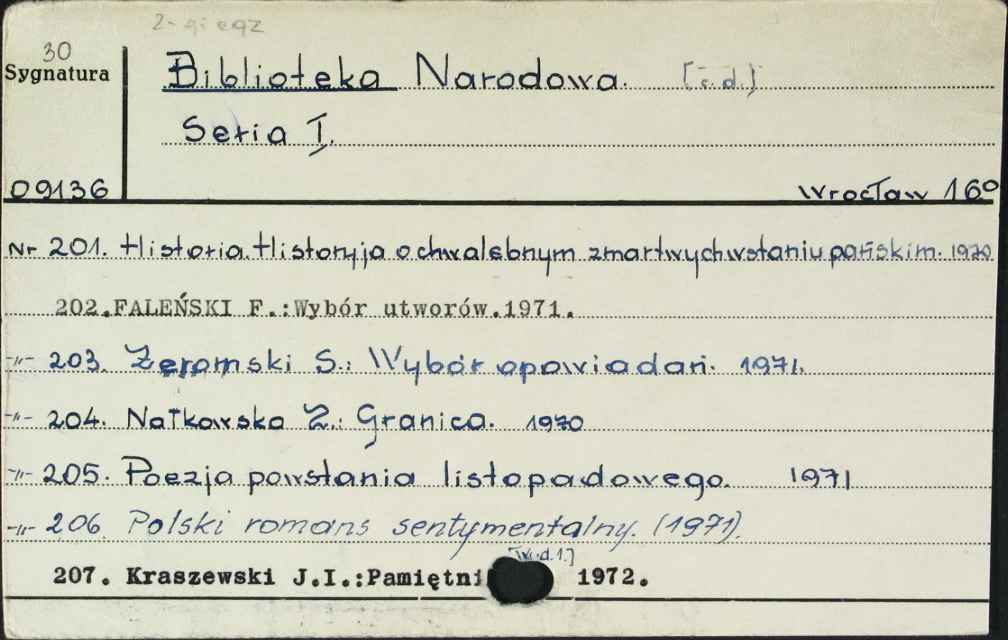 2-gi egz
30
Sygnatura
Biblioteka Narodowa. [c.d.]
Seria I.
09136
Wrocław 16º
Nr 201. Historia. Historyja o chwalebnym zmartwychwstaniu pańskim. 1970
202.FALEŃSKI F.:Wybór utworów.1971.
-"- 203. Żeromski S.: Wybór opowiadań. 1971.
-"- 204. Nałkowska Z.: Granica. 1970
-"- 205. Poezja powstania listopadowego. 1971
-"- 206. Polski romans sentymentalny. (1971).
[W.d.1.]
207. Kraszewski J.I.:Pamiętni 1972.